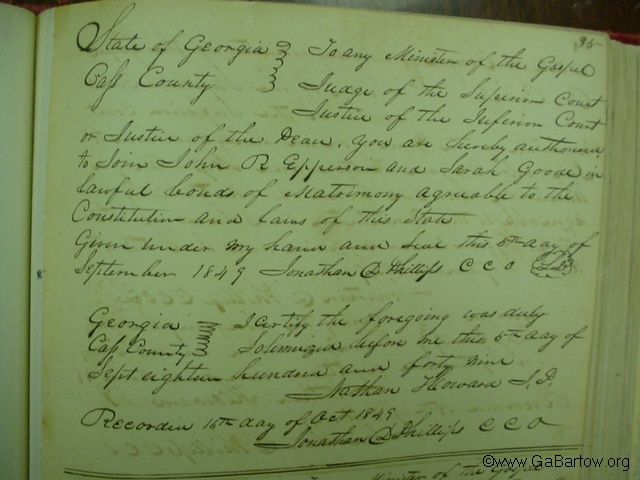 35
State of Georgia To any Minister of the Gospel
Cass County Judge of the Superior Court
Justice of the Inferior Court
or Justice of the Peace, you are hereby authorised
to Join John R Epperson and Sarah Goode in
lawful bonds of Matrimony agreable to the
Constitution and laws of this State
Given under my hand and seal this 5th day of
September 1849 Jonathan D Phillips C C O
Georgia I certify the foregoing was duly
Cass County Solimnized before me this 5th day of
Sept eighteen hundred and forty nine
Nathan Howard J.P.
Recorded 16th day of Oct 1849
Jonathan D Phillips C C O
Minister of the Gospel
©www.GaBartow.org